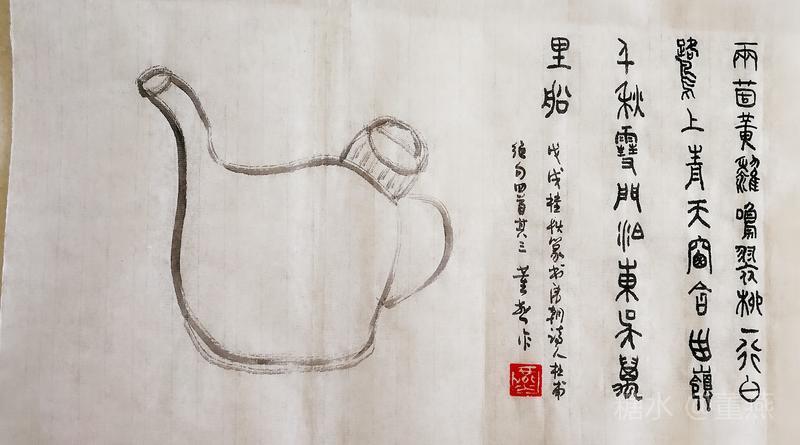 兩箇黃鸝鳴翠柳一行白
鷺上青天窗含西嶺
千秋雪門泊東吳萬
里船
戊戌桂秋篆书唐朝诗人杜甫
绝句四首其三 董燕作
糖水 @董燕